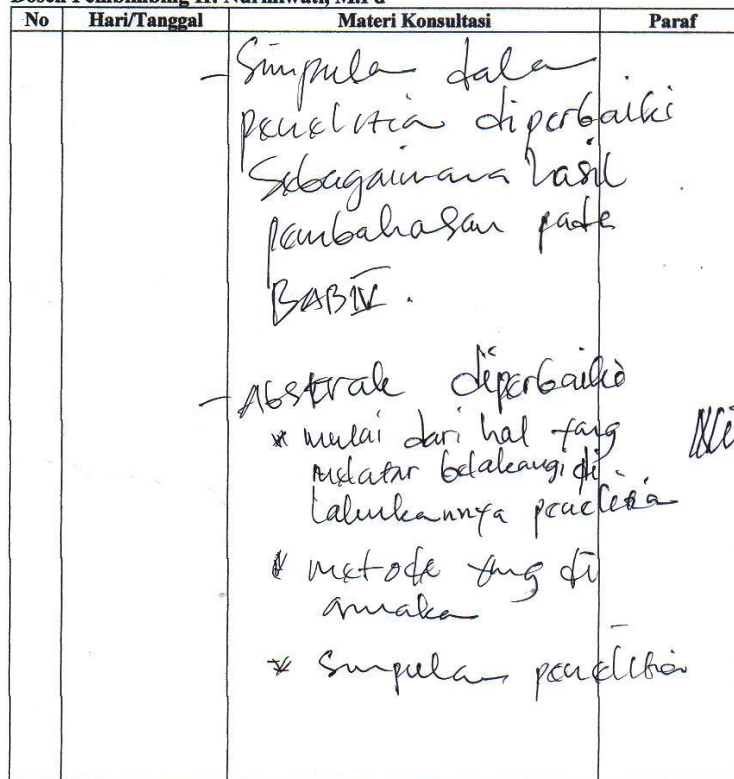 Dosen Pembimbing II: Nurmiwati, M.Pd
No Hari/Tanggal Materi Konsultasi Paraf
- Simpulan dalam
penelitian diperbaiki
Sebagaimana hasil
pembahasan pada
BAB IV.
- Abstrak diperbaiki
* mulai dari hal yang
melatar belakangi di
lakukannya penelitian
* metode yang di
gunakan
* Simpulan penelitian